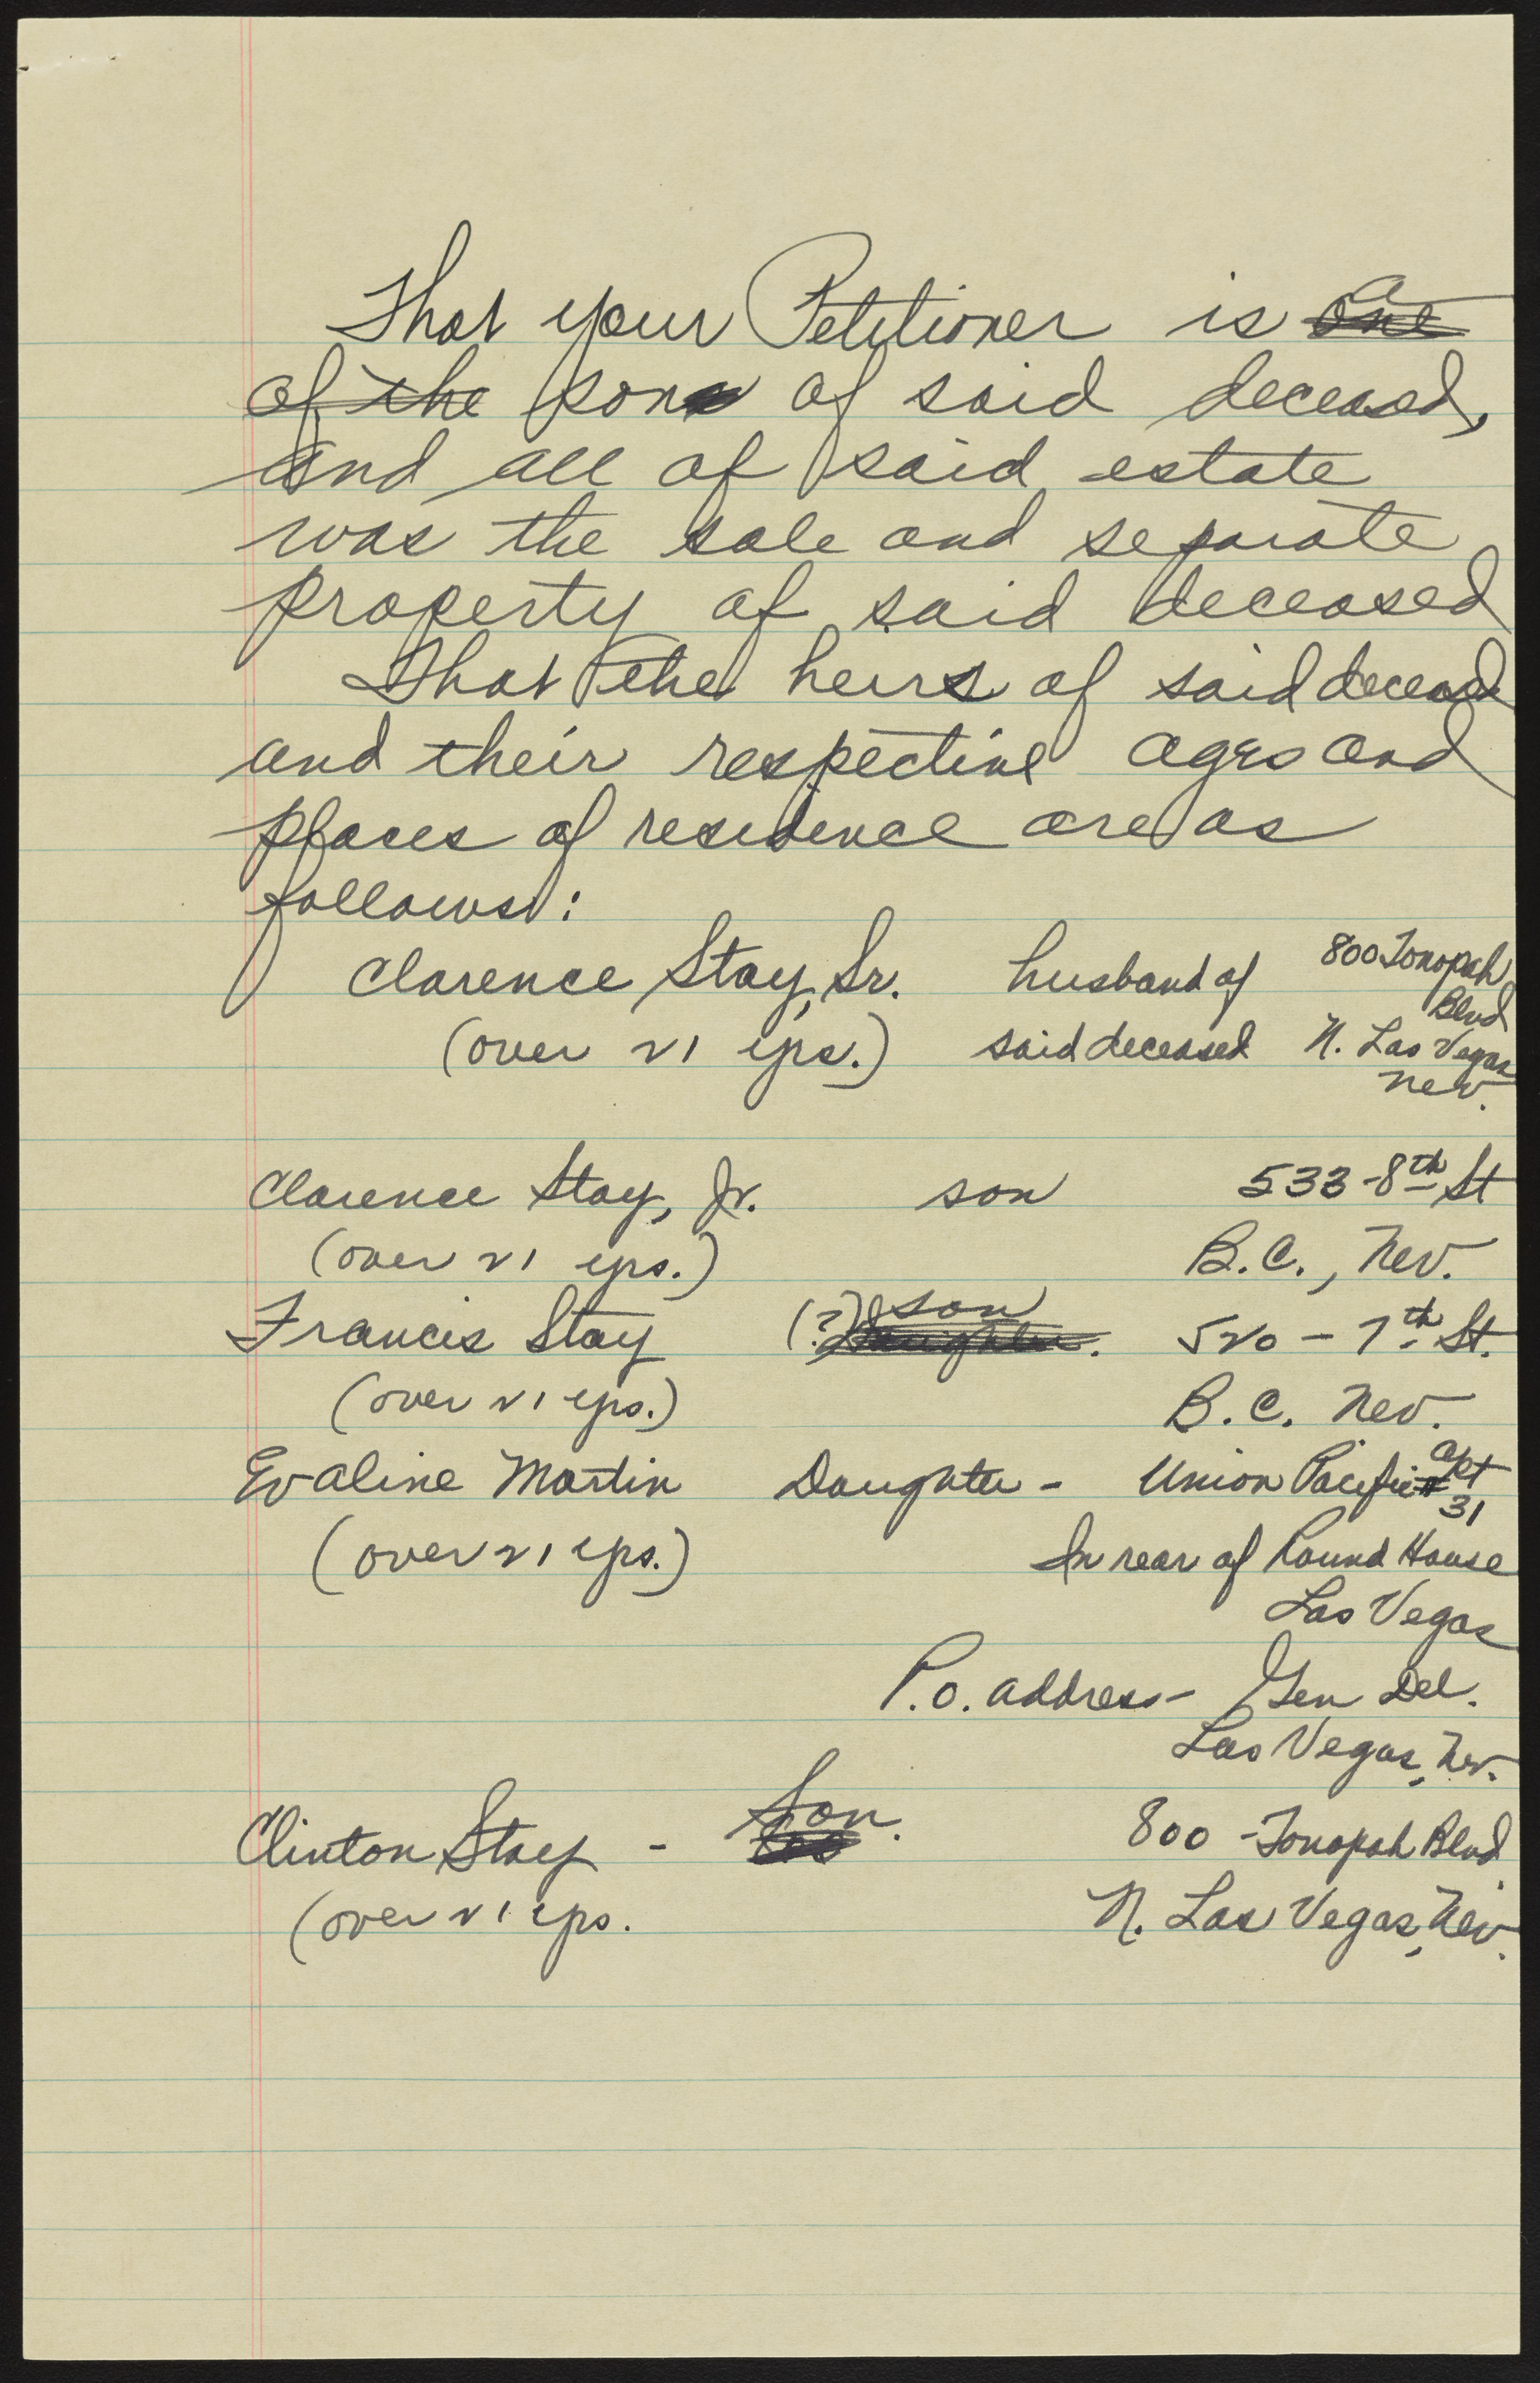 That your Petitioner is a ~~one~~
~~of the~~ son of said deceased,
and all of said estate
was the sole and separate
property of said deceased
That the heirs of said deceased
and their respective ages and
places of residence are as
follows:
Clarence Stay, Sr. husband of 800 Tonopah
Blvd
(over 21 yrs.) said deceased N. Las Vegas
Nev.
Clarence Stay, Jr. son 533-8th St
(over 21 yrs.) B.C., Nev.
Francis Stay (?) son ~~Daughter~~. 520 - 7th St.
(over 21 yrs.) B.C. Nev.
Evaline Martin Daughter - Union Pacific Apt
31
(over 21 yrs.) In rear of Round House
Las Vegas
P.O. address - Gen Del.
Las Vegas, Nev.
Clinton Stay - Son. 800 - Tonopah Blvd
(over 21 yrs. N. Las Vegas, Nev.